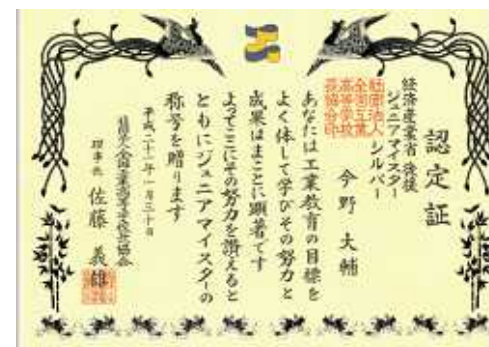 認定証
経済産業省後援
ジュニアマイスター
シルバー
社団法人
全国工業
高等学校
長協会印
今野大輔
あなたは工業教育の目標を
よく体して学びその努力と
成果はまことに顕著です
よってここにその努力を讃えると
ともにジュニアマイスターの
称号を贈ります
平成二十一年一月三十日
社団法人全国工業高等学校長協会
理事長 佐藤義雄